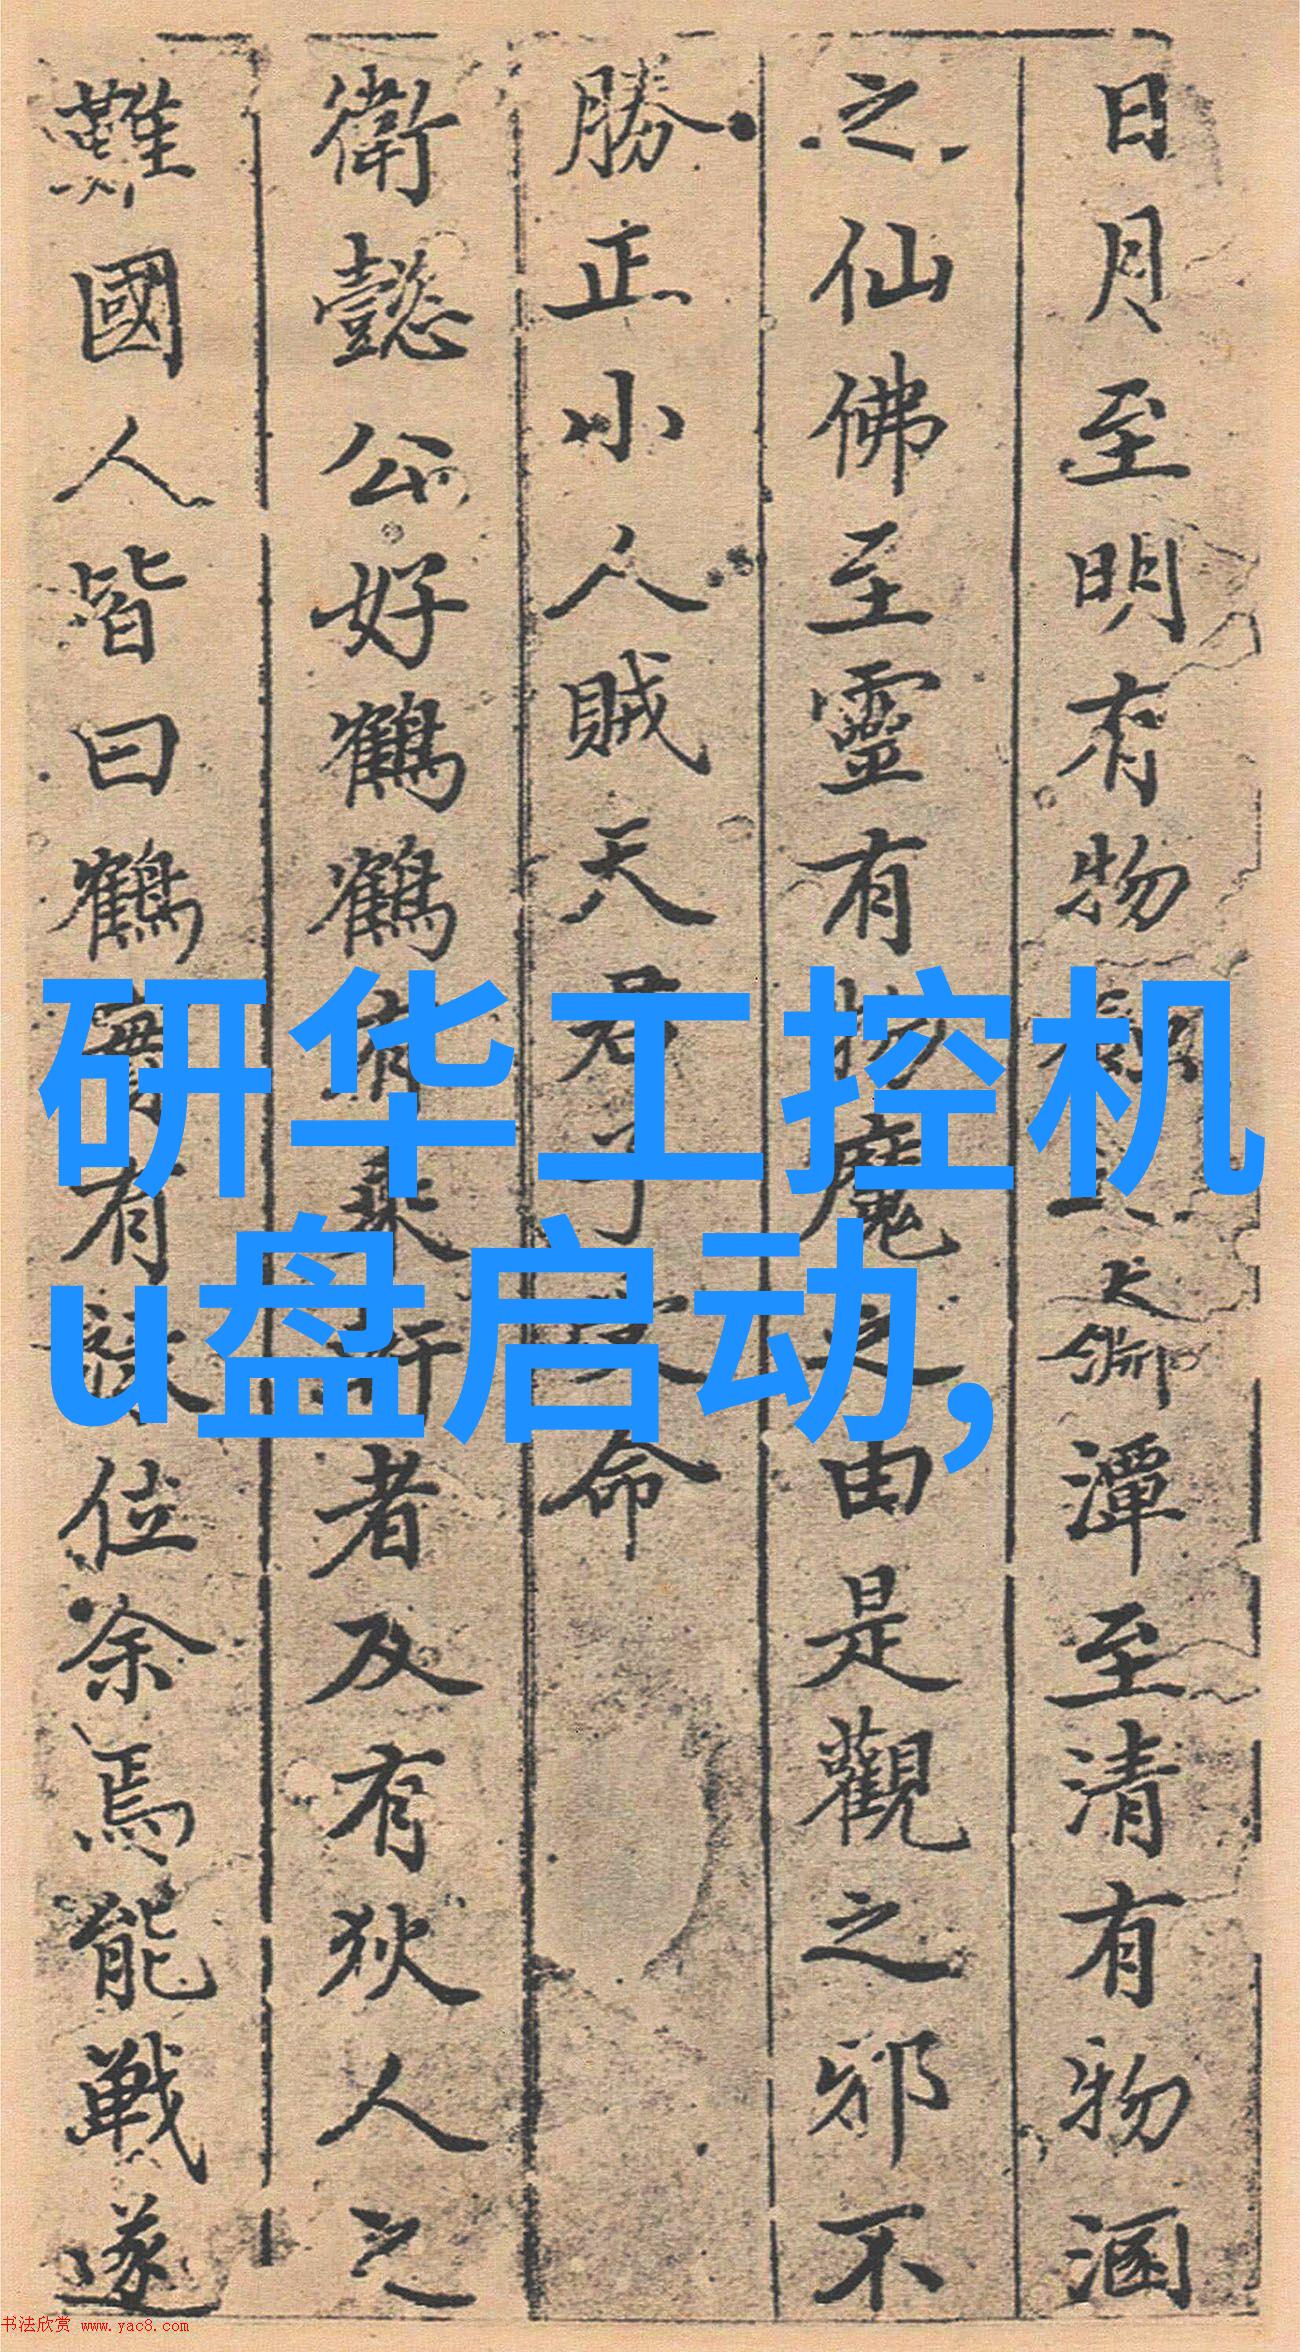 日月至明有物之潭至清有物涵
之仙佛至靈有物魔之由是觀之邪不
勝正小人賊天君子命
衛懿公好鶴鶴有乘軒者及有狄人之
難國人皆曰鶴實有祿位余焉能戰遂
研华工控机
u盘启动,
书法欣赏 www.yac8.com